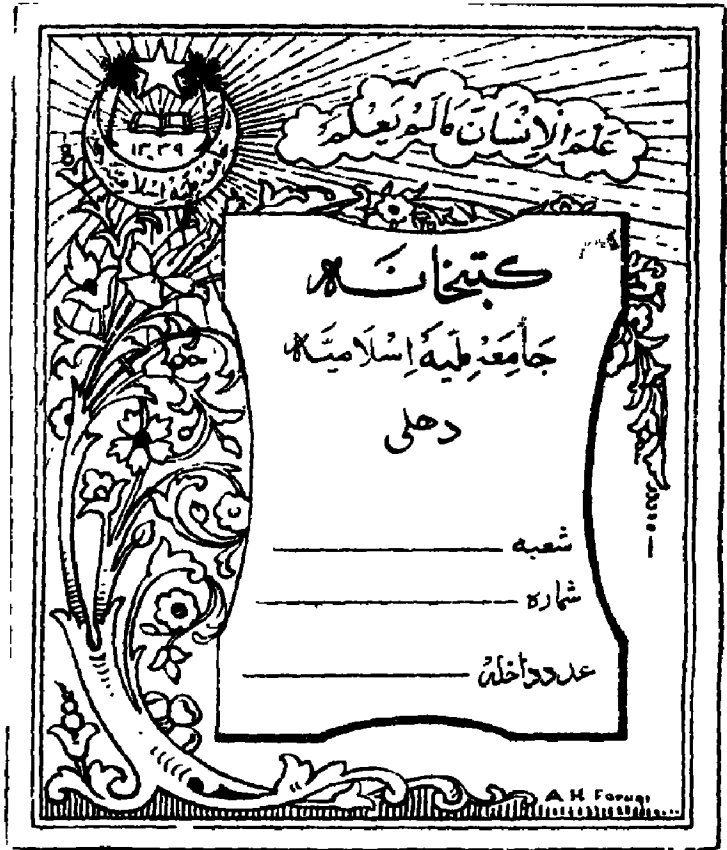 عَلَّمَ الْإِنْسَانَ مَا لَمْ يَعْلَمْ
۱۳۳۹
جامعہ ملیہ اسلامیہ
کتبخانہ
جَامِعَہ مِلِّیَہ اِسْلَامِیَّہ
دھلی
شعبه
شماره
عدد داخلہ
A H Faruqi